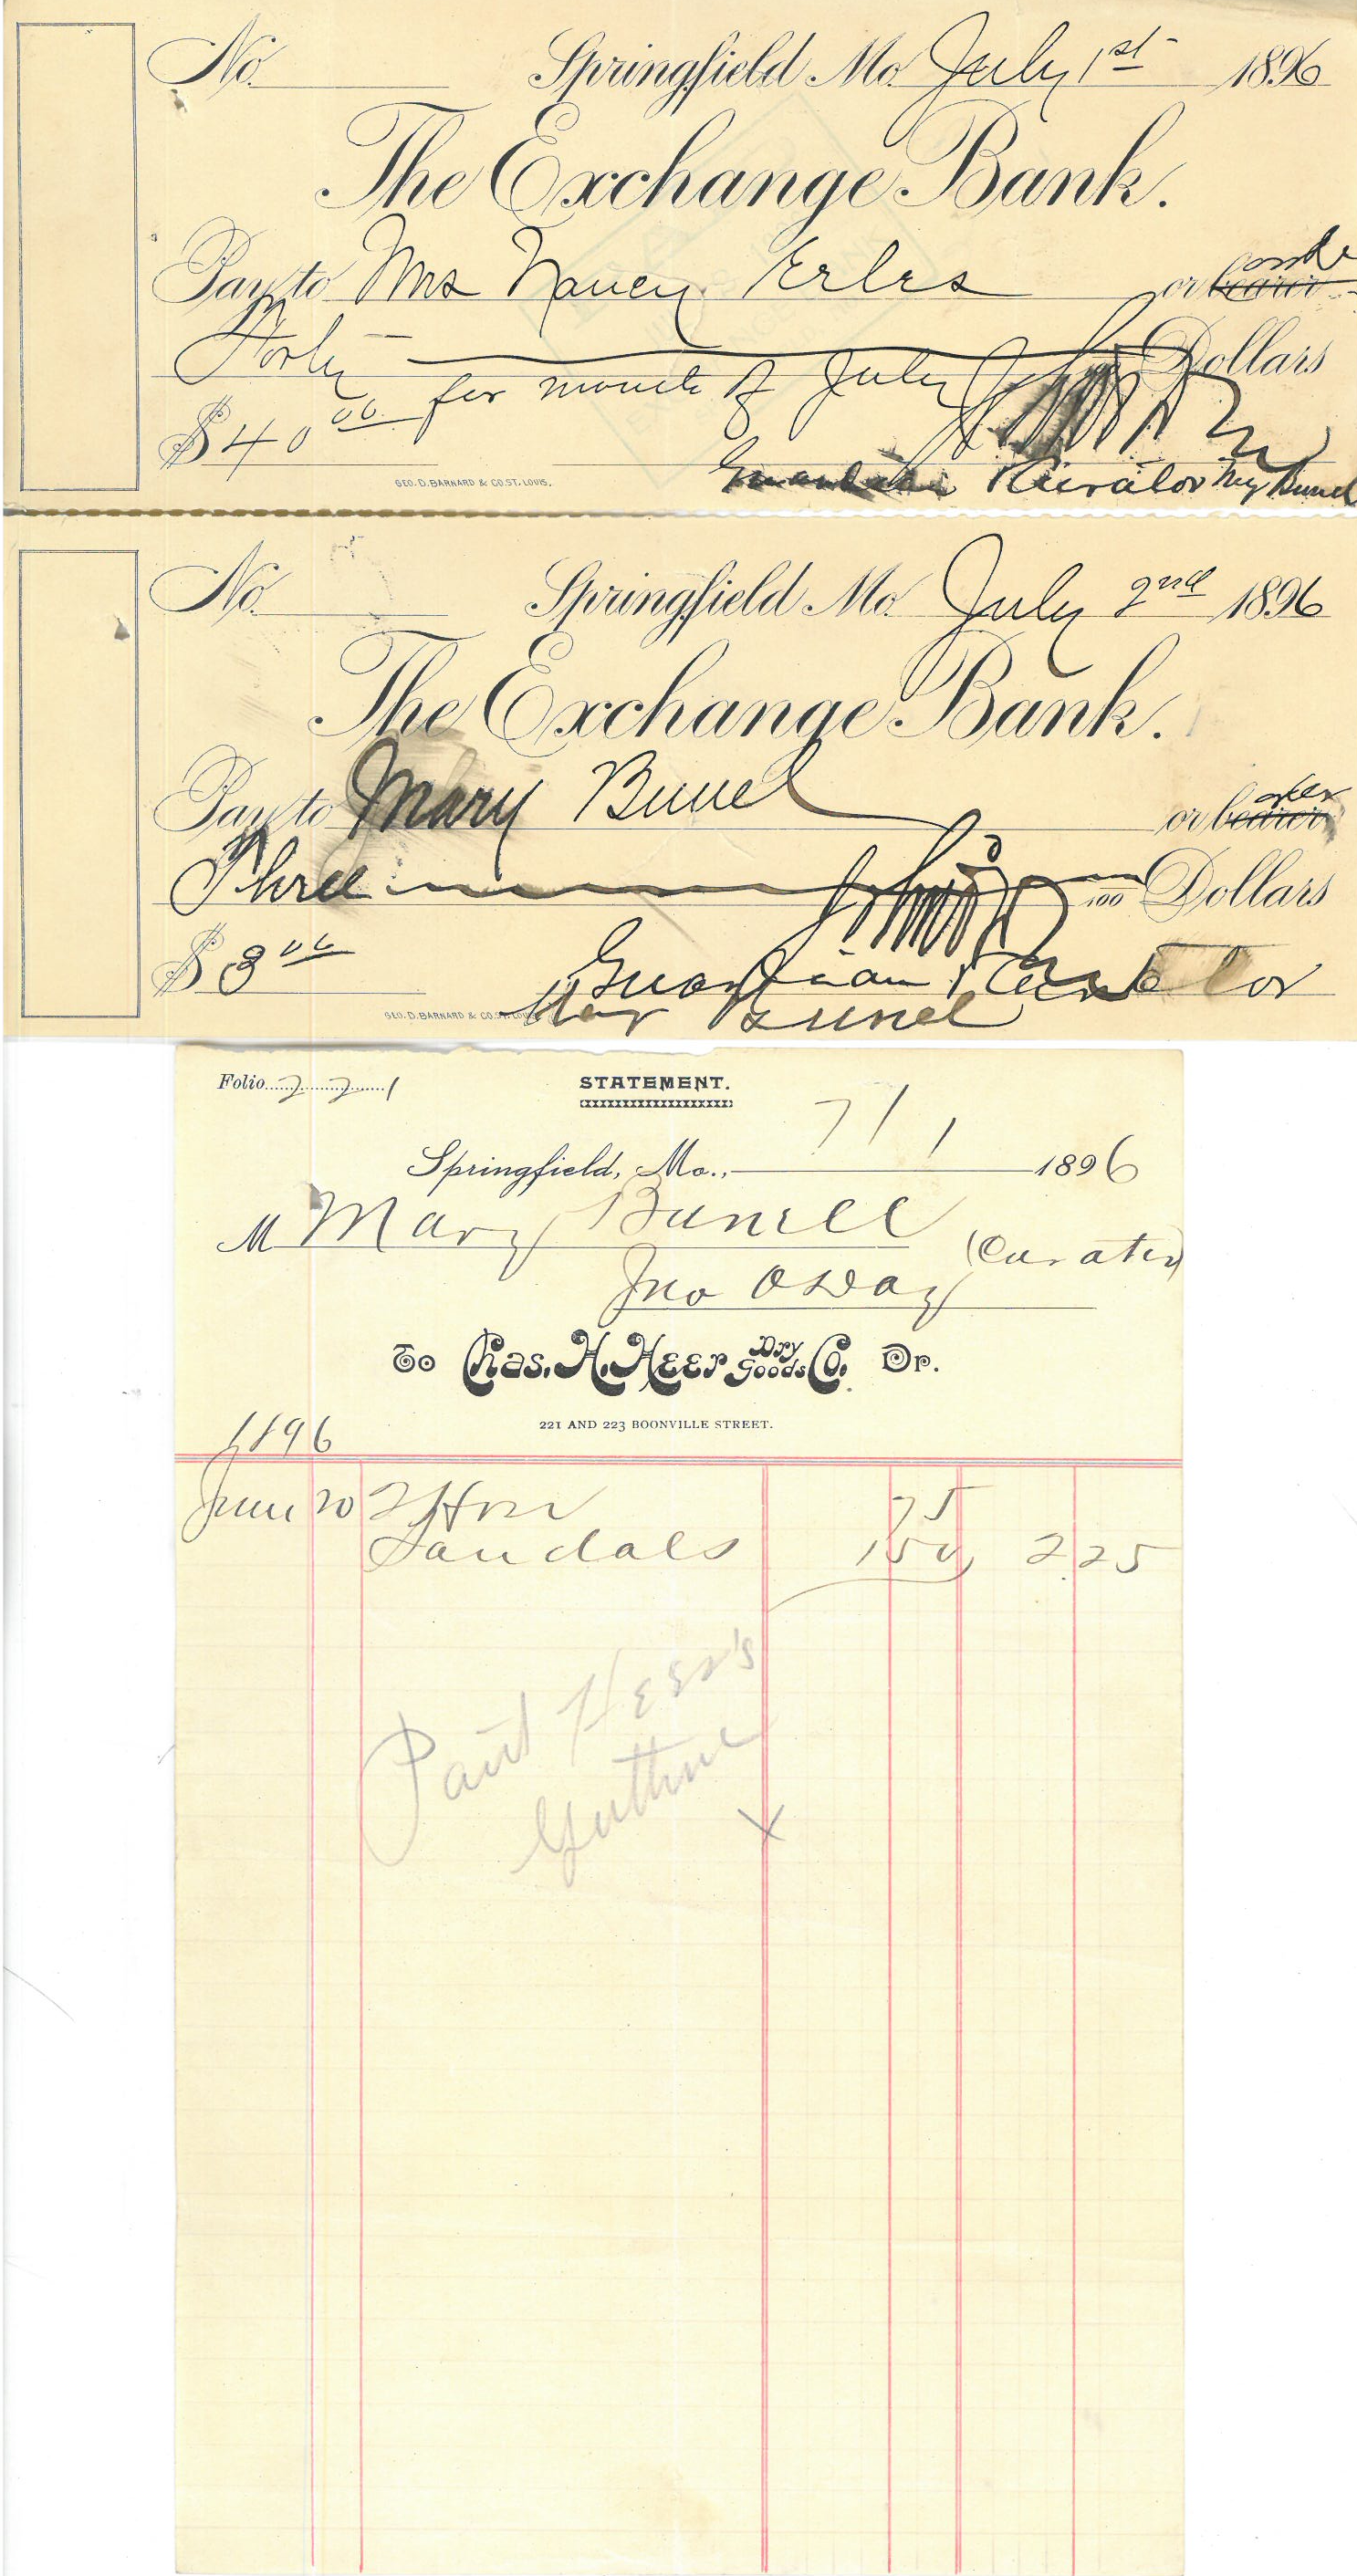 No. Springfield Mo. July 1st 1896
The Exchange Bank.
Pay to Mrs Nancy Erles or bearer
Forty Dollars
for month of July
$ 40 00
Guardian & Curator May Bunel
GEO. D. BARNARD & CO. ST. LOUIS.
No. Springfield Mo. July 2nd 1896
The Exchange Bank.
order
Pay to Mary Bunel or bearer
Three /100 Dollars
$ 3 00
Guardian & Curator
May Bunel
GEO. D. BARNARD & CO. ST. LOUIS
Folio 221 STATEMENT.
7/1
Springfield, Mo., 1896
M Mary Bunell
(Curator)
Jno O Day
To Chas. H. Heer Dry Goods Co. Dr.
221 AND 223 BOONVILLE STREET.
1896
June 20 2 Hose 75
Sandals 150 2 25
Heer's
X